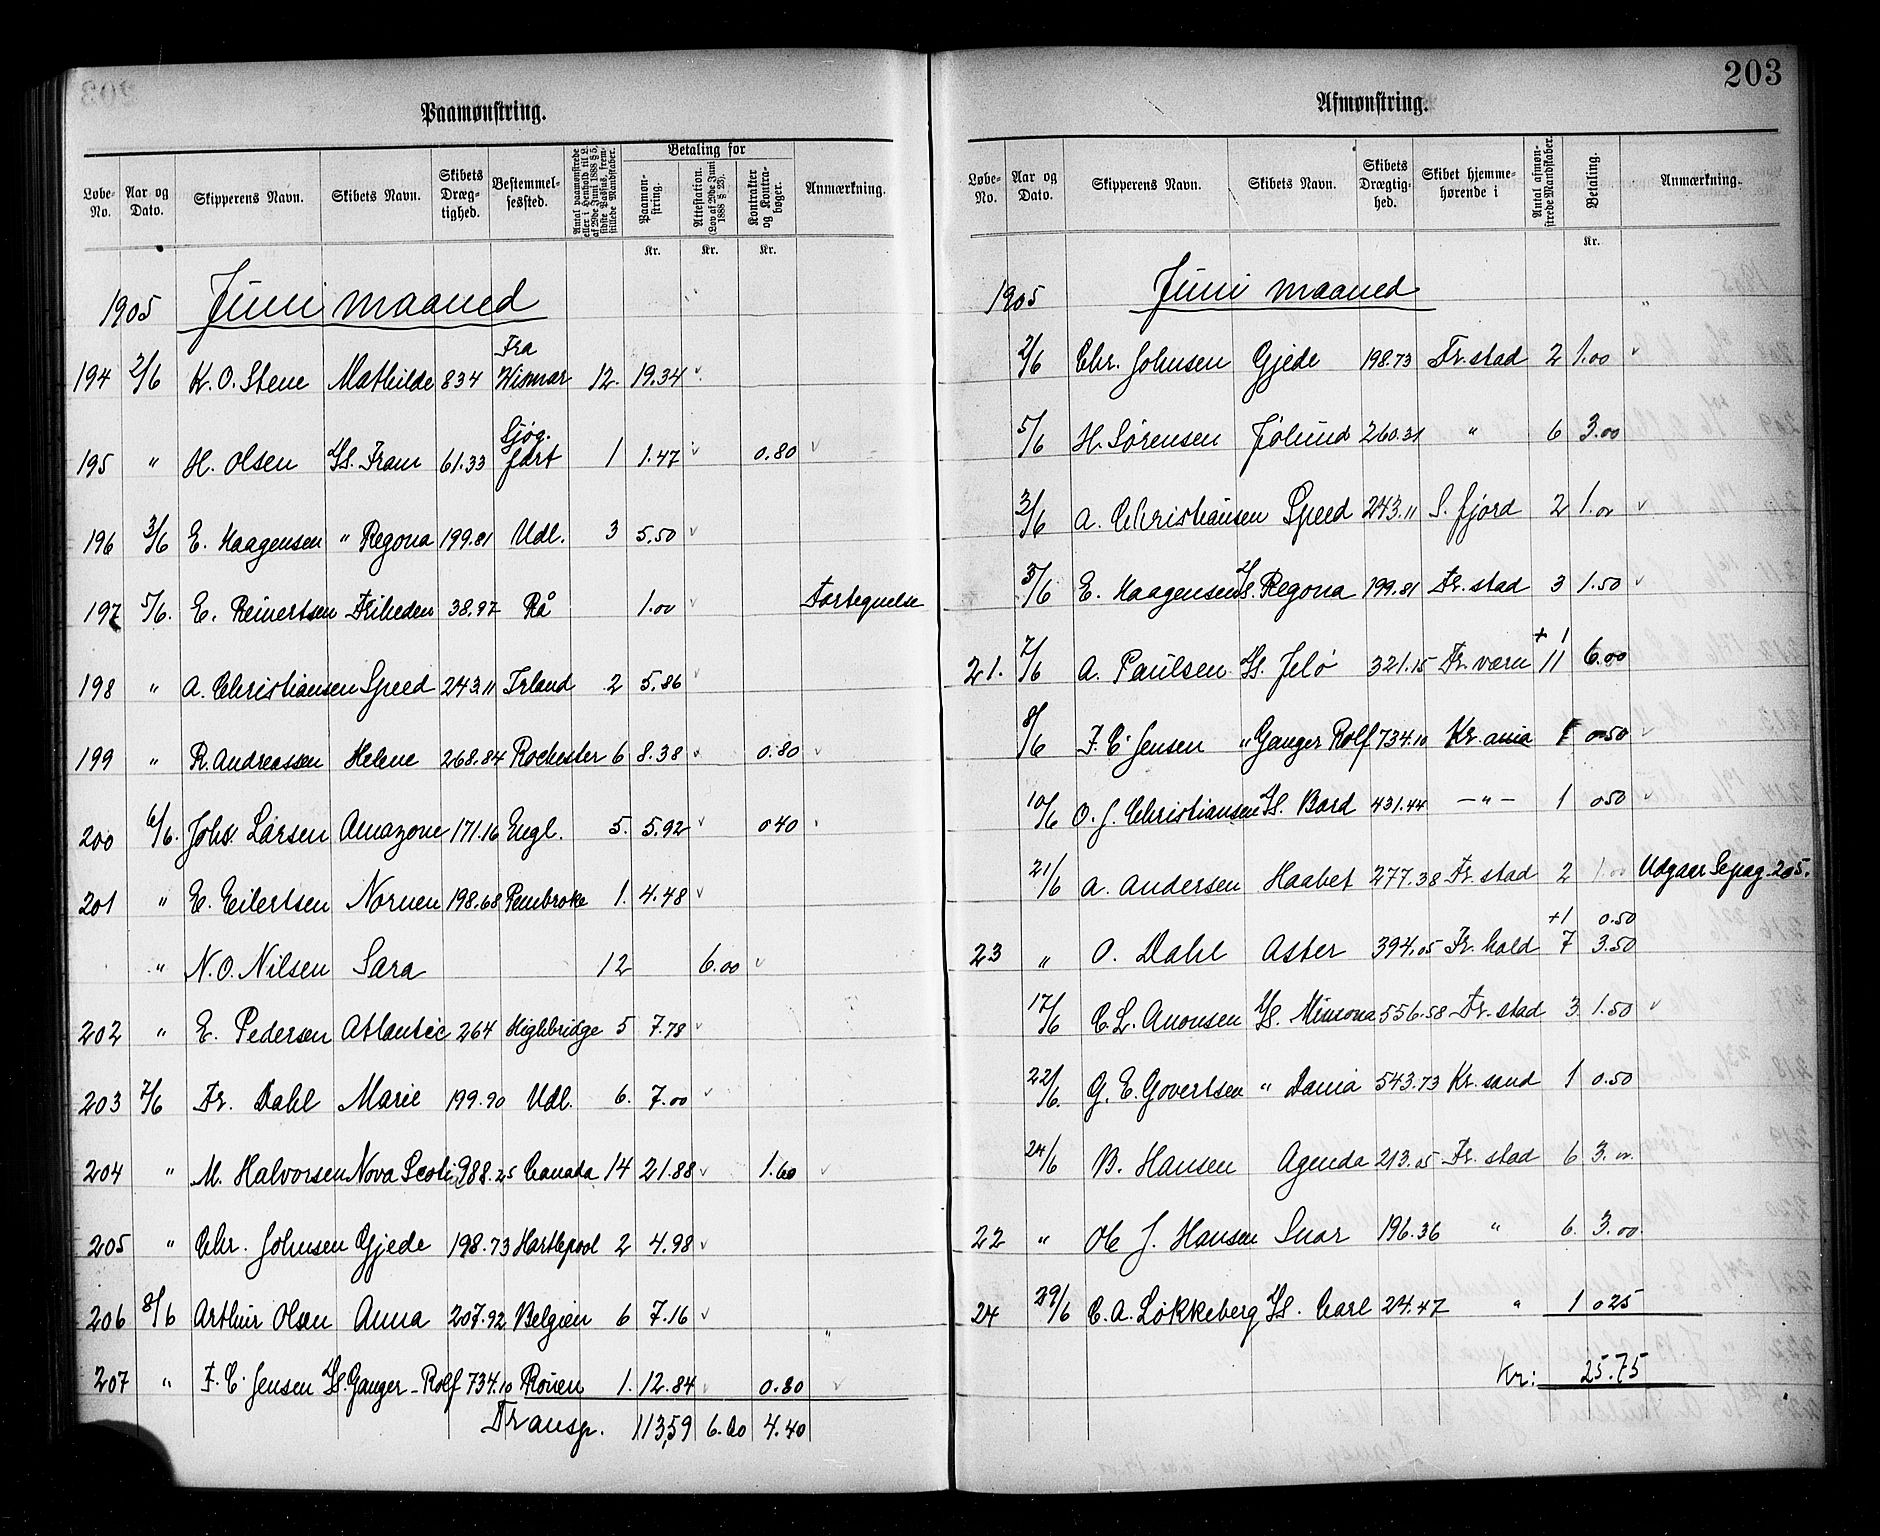 203
Paamønstring.
Løbe-No. Aar og Dato. Skipperens Navn. Skibets Navn. Skibets Dræg-tighed. Bestemmel-sessted. Betaling for Paamøn-string. Attestation. (Lov af 29de Juni 1888 § 25). Kontrakter og Kontra-bøger. Anmærkning.
Kr. Kr. Kr.
1905 Juni maaned
194 2/6 K. O. Stene Mathilde 834 Fra Wismar 12. 19.34
195 " H. Olsen Ys. Fram 61.33 Sjøg. fart 1 1.47 0.80
196 3/6 E. Haagensen " Regona 199.81 Udl. 3 5.50
197 5/6. E. Reinertsen Friheden 38.97 Rå 1.00 Fortegnelse
198 " A. Christiansen Speed 243.11 Irland 2 5.86
199 " R. Andreassen Helene 268.84 Rochester 6 8.38 0.80
200 6/6. Johs. Larsen Amazone 171.16 Engl. 5. 5.92 0.40
201 " E. Eilertsen Nornen 198.68 Pembroke 1. 4.48
" N. O. Nilsen Sara 12 6.00
202 " E. Pedersen Atlantic 264 Highbridge 5 7.78
203 7/6 Fr. Dahl Marie 199.90 Udl. 6. 7.00
204 " M. Halvorsen Nova Scoti 988.25 Canada 14 21.88 1.60
205 " Chr. Johnsen Gjede 198.73 Hartlepool 2 4.98
206 8/6 Arthur Olsen Anna 207.92 Belgien 6 7.16
207 " F. C. Jensen Ys. Ganger-Rolf 734.10 Rouen 1. 12.84 0.80
Transp. 113,59 6.00 4.40
203
Afmønstring.
Løbe-No. Aar og Dato. Skipperens Navn. Skibets Navn. Skibets Drægtig-hed. Skibet hjemme-hørende i Antal afmøn-strede Mandskaber. Betaling. Anmærkning.
Kr.
1905 Juni maaned
2/6 Chr. Johnsen Gjede 198.73 Fr. stad 2 1.00
5/6 H. Sørensen Jølund 260.31 " 6 3.00
3/6 A. Christiansen Speed 243.11 S. fjord 2 1.00
3/6 E. Haagensen Ys. Regona 199.81 Fr. stad 3 1.50
+ 1
21. 7/6 A. Paulsen Ys. Jelø 321.15 Fr. værn 11 6.00
8/6 F. C. Jensen " Ganger Rolf 734.10 Kr. ania 1 0.50
10/6 O. J. Christiansen Ys. Bard 431.44 - " - 1 0.50
21/6 A. Andersen Haabet 277.38 Fr. stad 2 1.00 Udgaar Se pag. 205.
+1 0.50
23 " O. Dahl Aster 394.05 Fr. hald 7 3.50
17/6 C. L. Amonsen Ys. Minsona 556.58 Fr. stad 3 1.50
22/6. G. E. Govertsen " Dania 543.73 Kr. sand 1 0.50
24/6 B. Hansen Agenda 213.05 Fr. stad 6 3.00
22 " Ole J. Hansen Snar 196.36 " 6. 3.00.
24 29/6 C. A. Løkkeberg Ys. Carl 24.47 " 1 0.25
Kr: 25.75